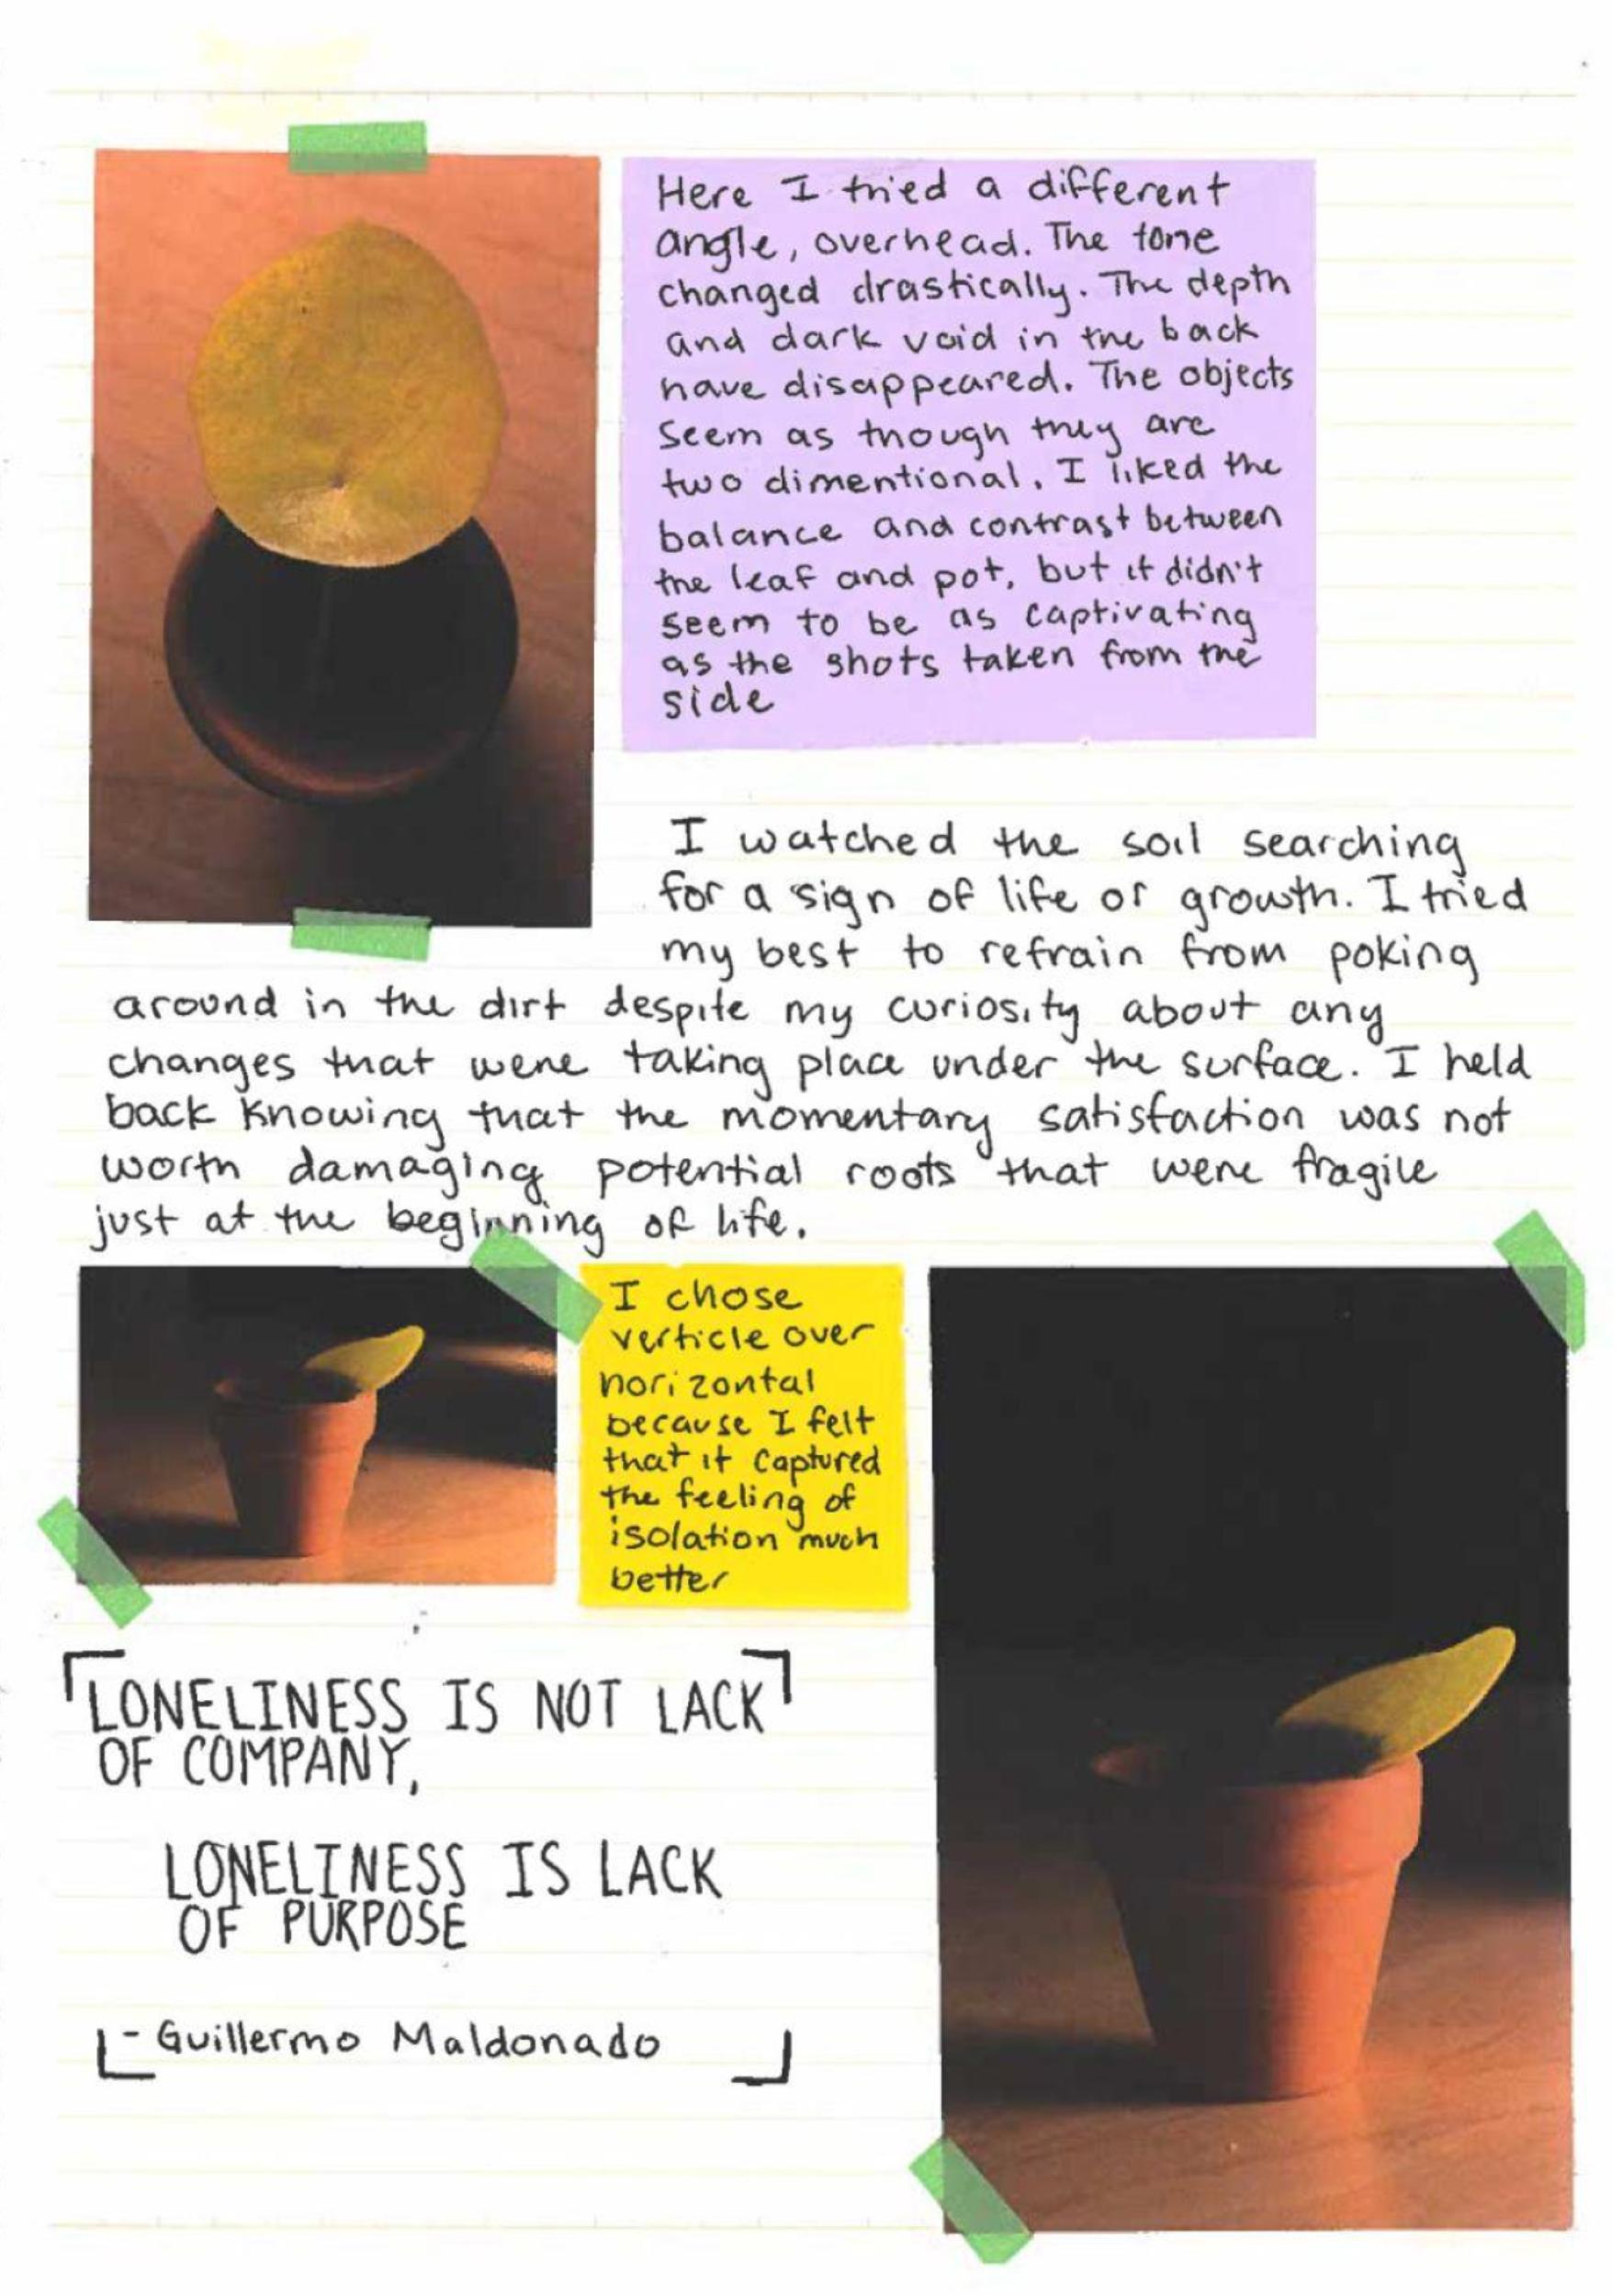 Here I tried a different
angle, overhead. The tone
changed drastically. The depth
and dark void in the back
have disappeared. The objects
seem as though they are
two dimentional. I liked the
balance and contrast between
the leaf and pot, but it didn't
seem to be as captivating
as the shots taken from the
side
I watched the soil searching
for a sign of life or growth. I tried
my best to refrain from poking
around in the dirt despite my curiosity about any
changes that were taking place under the surface. I held
back knowing that the momentary satisfaction was not
worth damaging potential roots that were fragile
just at the beginning of life.
I chose
verticle over
horizontal
because I felt
that it captured
the feeling of
isolation much
better
LONELINESS IS NOT LACK
OF COMPANY,
LONELINESS IS LACK
OF PURPOSE
- Guillermo Maldonado